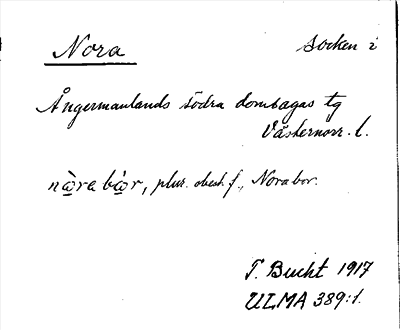 Nora socken i
Ångermanlands södra domsagas tg
Västernorr. l.
nò̤ra bò̤r, plur. obest. f., Norabor.
T. Bucht 1917
ULMA 389:1.